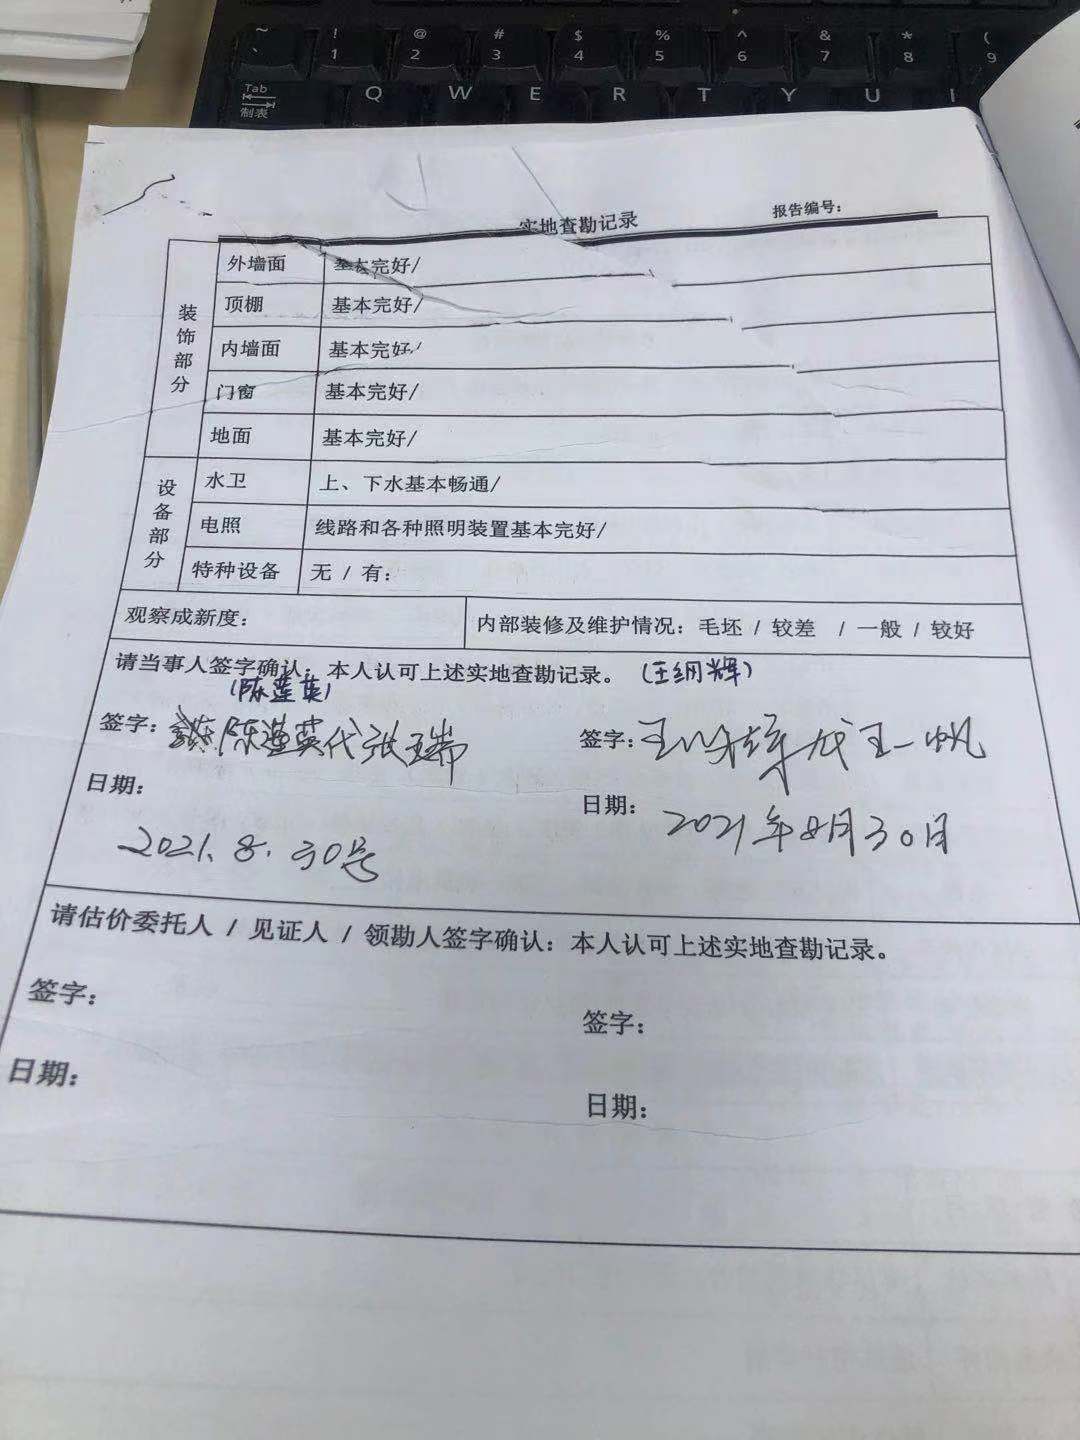 ~ ` ! 1 @ 2 # 3 $ 4 % 5 ^ 6 & 7 * 8 ( 9
Tab 制表 Q W E R T Y U I
实地查勘记录 报告编号：
装饰部分
外墙面 基本完好/
顶棚 基本完好/
内墙面 基本完好/
门窗 基本完好/
地面 基本完好/
设备部分
水卫 上、下水基本畅通/
电照 线路和各种照明装置基本完好/
特种设备 无 / 有：
观察成新度： 内部装修及维护情况：毛坯 / 较差 / 一般 / 较好
请当事人签字确认：本人认可上述实地查勘记录。
(陈莲英)
签字： 陈莲英代张玉瑞
签字： 王一帆
日期： 2021.8.30号
日期： 2021年8月30日
请估价委托人 / 见证人 / 领勘人签字确认：本人认可上述实地查勘记录。
签字： 签字：
日期： 日期：